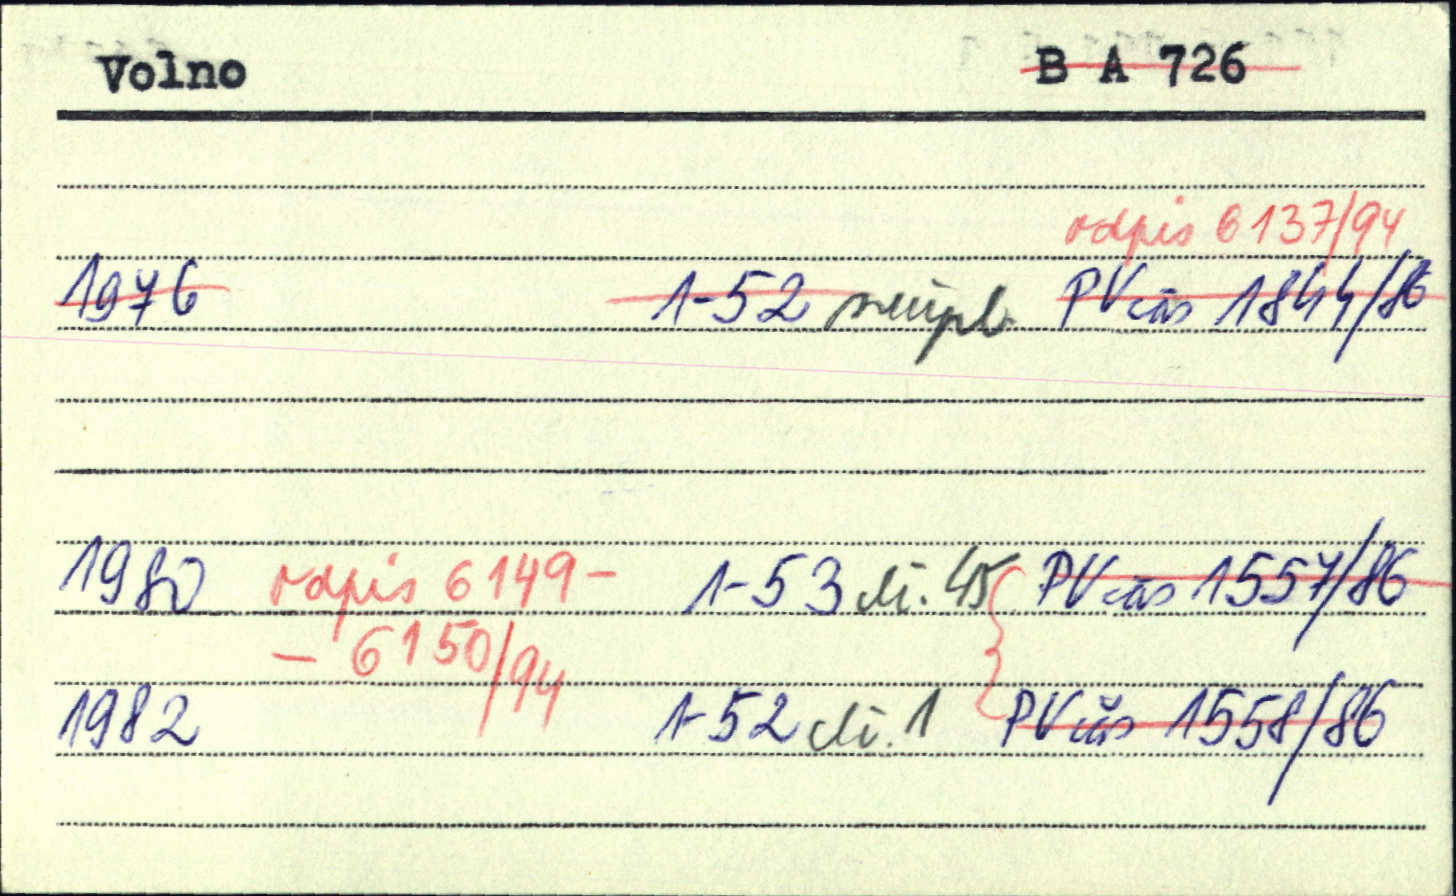 Volno B A 726
odpis 6137/94
1976 1-52 neúpl. PV čas 1844/86
1980 odpis 6149- 1-53 chí. 45 PV čas 1557/86
- 6150/94
1982 1-52 chí. 1 PV čas 1558/86